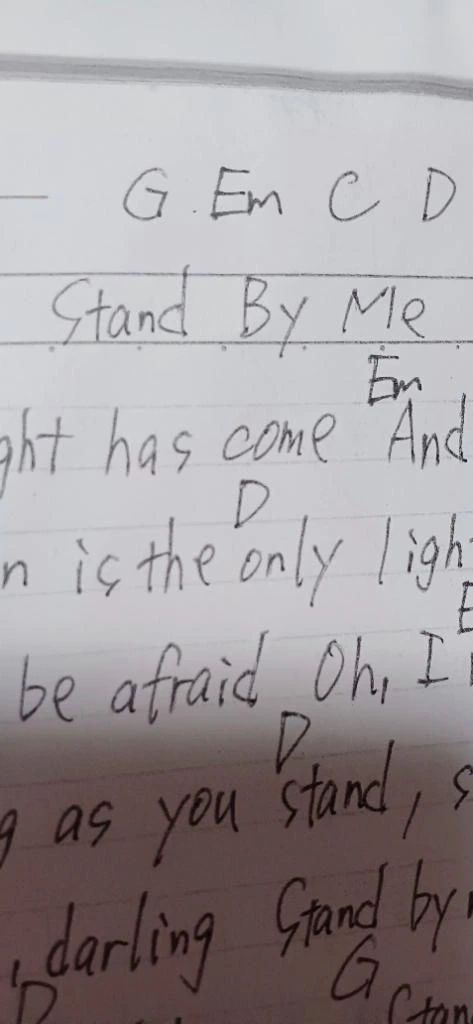 G Em C D
Stand By Me
Em
ght has come And
D
n is the only ligh
E
be afraid Oh, I
D
g as you stand, s
, darling Stand by
G
D
Stan